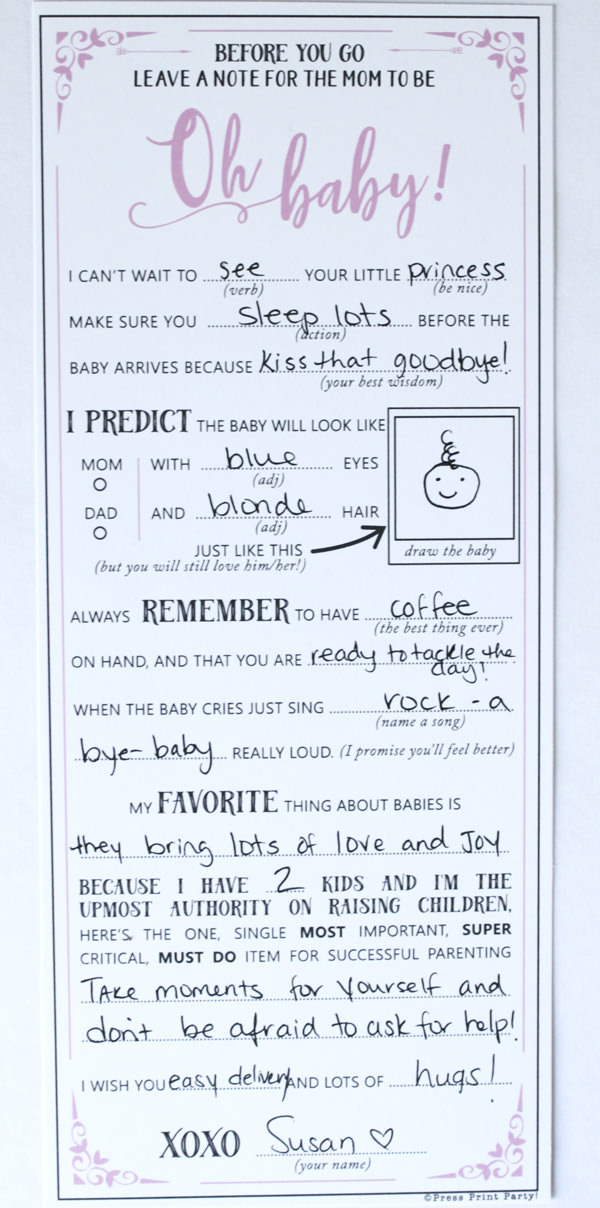 BEFORE YOU GO
LEAVE A NOTE FOR THE MOM TO BE
Oh baby!
I CAN'T WAIT TO see YOUR LITTLE princess
(verb) (be nice)
MAKE SURE YOU sleep lots BEFORE THE
(action)
BABY ARRIVES BECAUSE kiss that goodbye!
(your best wisdom)
I PREDICT THE BABY WILL LOOK LIKE
MOM WITH blue EYES
(adj)
DAD AND blonde HAIR
(adj)
JUST LIKE THIS
(but you will still love him/her!)
draw the baby
ALWAYS REMEMBER TO HAVE coffee
(the best thing ever)
ON HAND, AND THAT YOU ARE ready to tackle the
day!
WHEN THE BABY CRIES JUST SING rock - a
(name a song)
bye- baby REALLY LOUD. (I promise you'll feel better)
MY FAVORITE THING ABOUT BABIES IS
they bring lots of love and Joy
BECAUSE I HAVE 2 KIDS AND I'M THE
UPMOST AUTHORITY ON RAISING CHILDREN,
HERE'S THE ONE, SINGLE MOST IMPORTANT, SUPER
CRITICAL, MUST DO ITEM FOR SUCCESSFUL PARENTING
Take moments for yourself and
don't be afraid to ask for help!
I WISH YOU easy delivery AND LOTS OF hugs!
XOXO Susan ♡
(your name)
©Press Print Party!